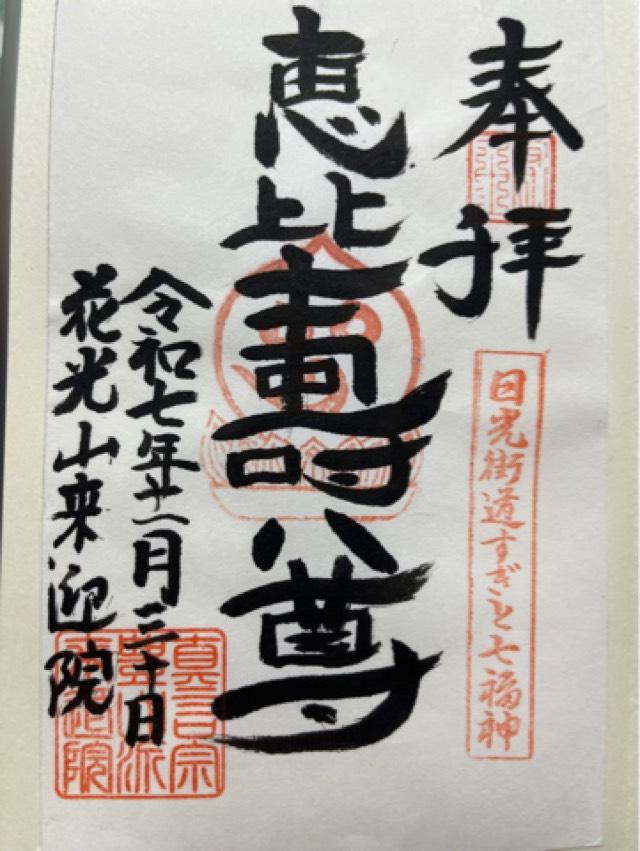 奉拝
日光街道すぎと七福神
恵比壽尊
令和七年十一月三十日
花光山来迎院
真言宗
豊山派
来迎院